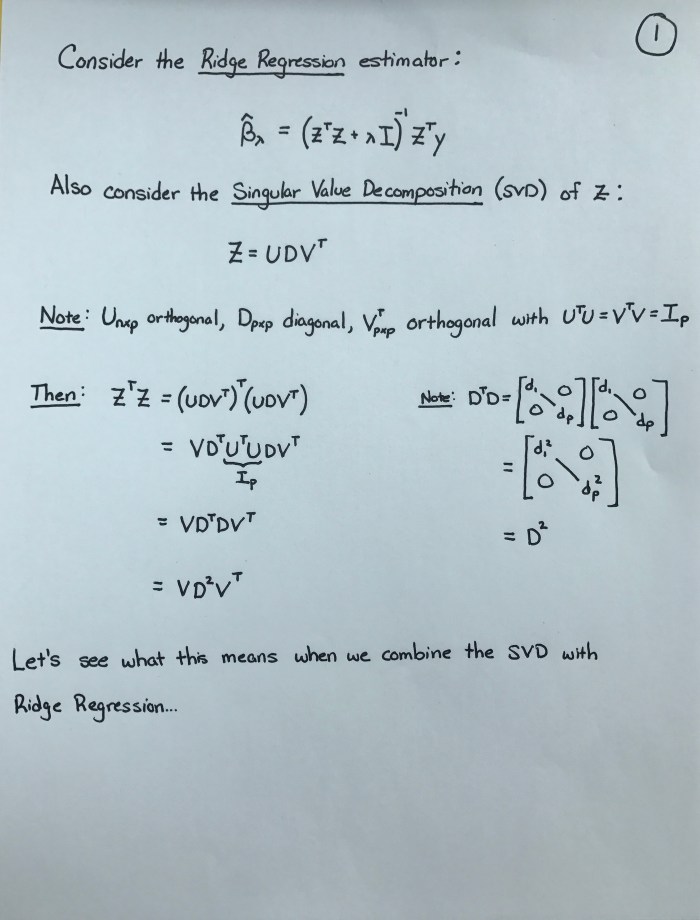 1
Consider the Ridge Regression estimator:
β̂_λ = (ZᵀZ + λI)⁻¹Zᵀy
Also consider the Singular Value Decomposition (SVD) of Z:
Z = UDVᵀ
Note: U_{n×p} orthogonal, D_{p×p} diagonal, Vᵀ_{p×p} orthogonal with UᵀU = VᵀV = I_p
Then: ZᵀZ = (UDVᵀ)ᵀ(UDVᵀ)
= VDᵀUᵀUDVᵀ
I_p
= VDᵀDVᵀ
= VD²Vᵀ
Note: DᵀD = [d₁ \ 0 0 d_p] [d₁ \ 0 0 d_p]
= [d₁² \ 0 0 d_p²]
= D²
Let's see what this means when we combine the SVD with
Ridge Regression...